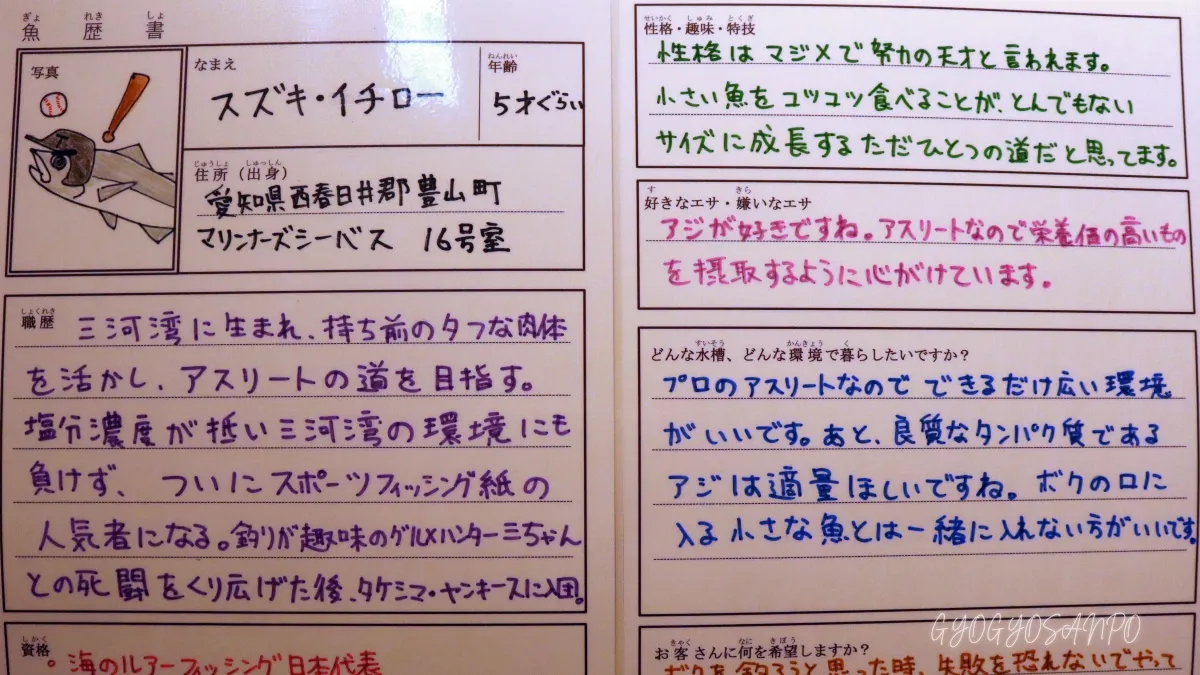 魚歴書
ぎょ れき しょ
写真
なまえ
スズキ・イチロー
年齢
ねんれい
5才ぐらい
住所(出身)
じゅうしょ しゅっしん
愛知県西春日井郡豊山町
マリンナーズシーベス 16号室
職歴
しょくれき
三河湾に生まれ、持ち前のタフな肉体
を活かし、アスリートの道を目指す。
塩分濃度が低い三河湾の環境にも
負けず、ついにスポーツフィッシング紙の
人気者になる。釣りが趣味のグルメハンター三ちゃん
との死闘をくり広げた後、タケシマ・ヤンキースに入団。
資格
しかく
。海のルアーフィッシング日本代表
性格・趣味・特技
せいかく しゅみ とくぎ
性格はマジメで努力の天才と言われます。
小さい魚をコツコツ食べることが、とんでもない
サイズに成長するただひとつの道だと思ってます。
好きなエサ・嫌いなエサ
す きら
アジが好きですね。アスリートなので栄養価の高いもの
を摂取するように心がけています。
どんな水槽、どんな環境で暮らしたいですか?
すいそう かんきょう く
プロのアスリートなので できるだけ広い環境
がいいです。あと、良質なタンパク質である
アジは適量ほしいですね。ボクの口に
入る小さな魚とは一緒に入れない方がいいです。
お客さんに何を希望しますか?
きゃく なに きぼう
ボクを釣ろうと思った時、失敗を恐れないでやって
GYOGYOSANPO